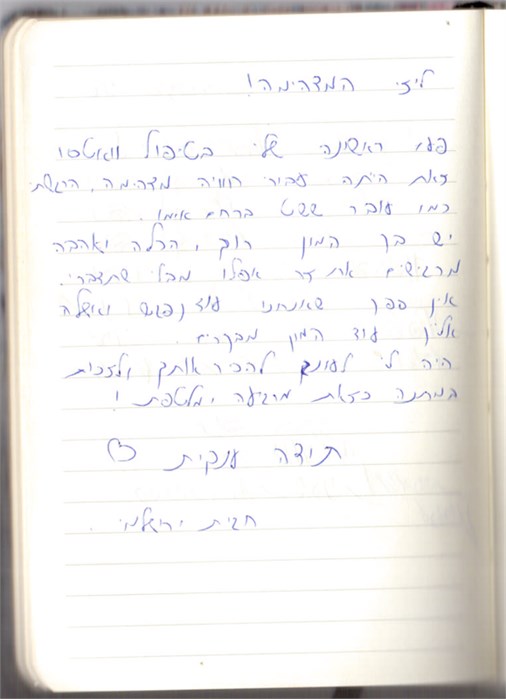 ליזי המדהימה!
פעם ראשונה שלי בטיפול וואטסו
זאת היתה עבורי חוויה מדהימה. הרגשתי
כמו עובר ששט ברחם אימו.
יש בך המון רוך, הכלה ואהבה
מרגישים את זה אפילו מבלי שתדברי.
אין ספק שאנחנו עוד נפגש ואשלח
אלייך עוד המון מבקרים.
היה לי לעונג להכיר אותך ולזכות
במתנה כזאת מרגיעה ומלטפת!
תודה ענקית ♡
חגית